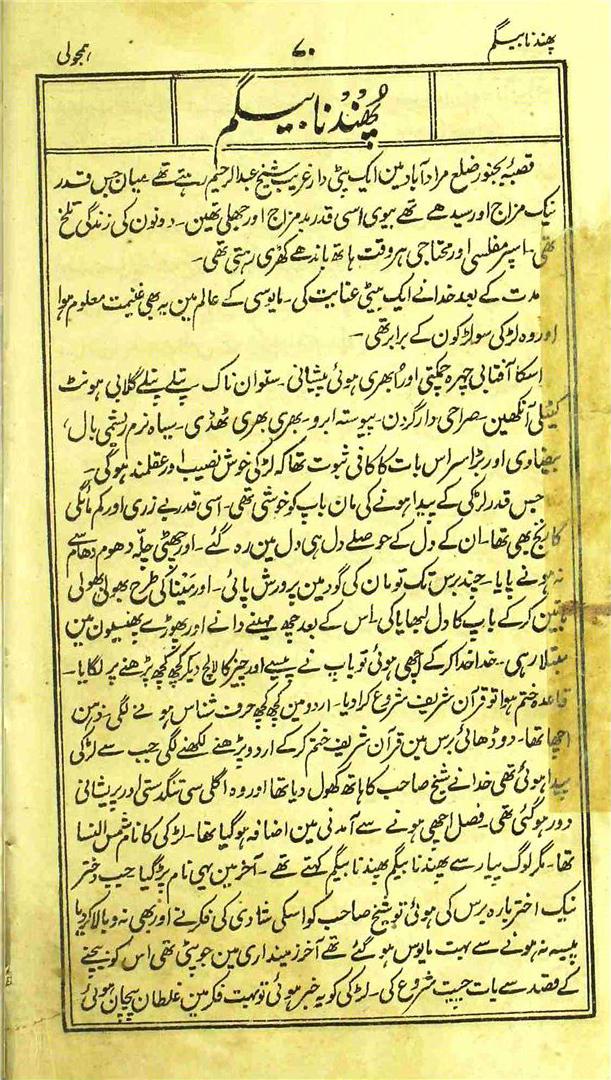 پھندنا بیگم ۷۰ ہمجولی
پُھنْدْنا بیگم
قصبۂ بجنور ضلع مرادآباد مین ایک پٹی دار غریب شیخ عبدالرحیم رہتے تھے میان جس قدر
نیک مزاج اور سیدھے تھے بیوی اسی قدر بدمزاج اور جھلی تھین۔ دونون کی زندگی تلخ
تھی۔ اسپر مفلسی اور محتاجی ہر وقت ہاتھ باندھے کھڑی رہتی تھی۔
مدت کے بعد خدا نے ایک بیٹی عنایت کی۔ مایوسی کے عالم مین یہ بھی غنیمت معلوم ہوا
اور وہ لڑکی سو لڑکون کے برابر تھی۔
اسکا آفتابی چہرہ چمکتی اور اُبھری ہوئی پیشانی۔ ستوان ناک پتلے پتلے گلابی ہونٹ
کٹیلی آنکھین۔ صراحی دار گردن۔ پیوستہ ابرو۔ بھری بھری ٹھڈی۔ سیاہ نرم ریشمی بال،
بیضاوی اور بڑا سر اس بات کا کافی ثبوت تھا کہ لڑکی خوش نصیب اور عقلمند ہوگی۔
جس قدر لڑکی کے پیدا ہونے کی مان باپ کو خوشی تھی۔ اسی قدر بے زری اور کم مائگی
کا رنج بھی تھا۔ ان کے دل کے حوصلے دل ہی دل مین رہ گئے۔ اور چھٹی چلّہ دھوم دھام سے
نہ ہونے پایا۔ چند برس تک تو مان کی گود مین پرورش پائی۔ اور مَینْا کی طرح بھولی بھولی
باتین کرکے باپ کا دل لبھایا کی۔ اس کے بعد چھ مہینے دانے اور پھوڑے پھنسیون مین
مبتلا رہی۔ خدا خدا کرکے اچھی ہوئی تو باپ نے پیسے اور چیز کا لالچ دیکر کچھ کچھ پڑھنے پر لگایا۔
قاعدہ ختم ہوا تو قرآن شریف شروع کرادیا۔ اردو مین کچھ کچھ حرف شناس ہونے لگی۔ ذہن
اچھا تھا۔ دو ڈھائی برس مین قرآن شریف ختم کرکے اردو پڑھنے لکھنے لگی جب سے لڑکی
پیدا ہوئی تھی خدا نے شیخ صاحب کا ہاتھ کھول دیا تھا اور وہ اگلی سی تنگدستی اور پریشانی
دور ہوگئی تھی۔ فصل اچھی ہونے سے آمدنی مین اضافہ ہوگیا تھا۔ لڑکی کا نام شمس النسا
تھا۔ مگر لوگ پیار سے پھندنا بیگم پھندنا بیگم کہتے تھے۔ آخر مین یہی نام پڑگیا جب دختر
نیک اختر بارہ برس کی ہوئی تو شیخ صاحب کو اسکی شادی کی فکر نے اور بھی تہ و بالا کردیا
پیسہ نہ ہونے سے بہت مایوس ہوگئے تھے آخر زمینداری مین جو پٹی تھی اس کو بیچنے
کے قصد سے بات چیت شروع کی۔ لڑکی کو یہ خبر ہوئی تو بہت فکر مین غلطان پیچان ہوئی